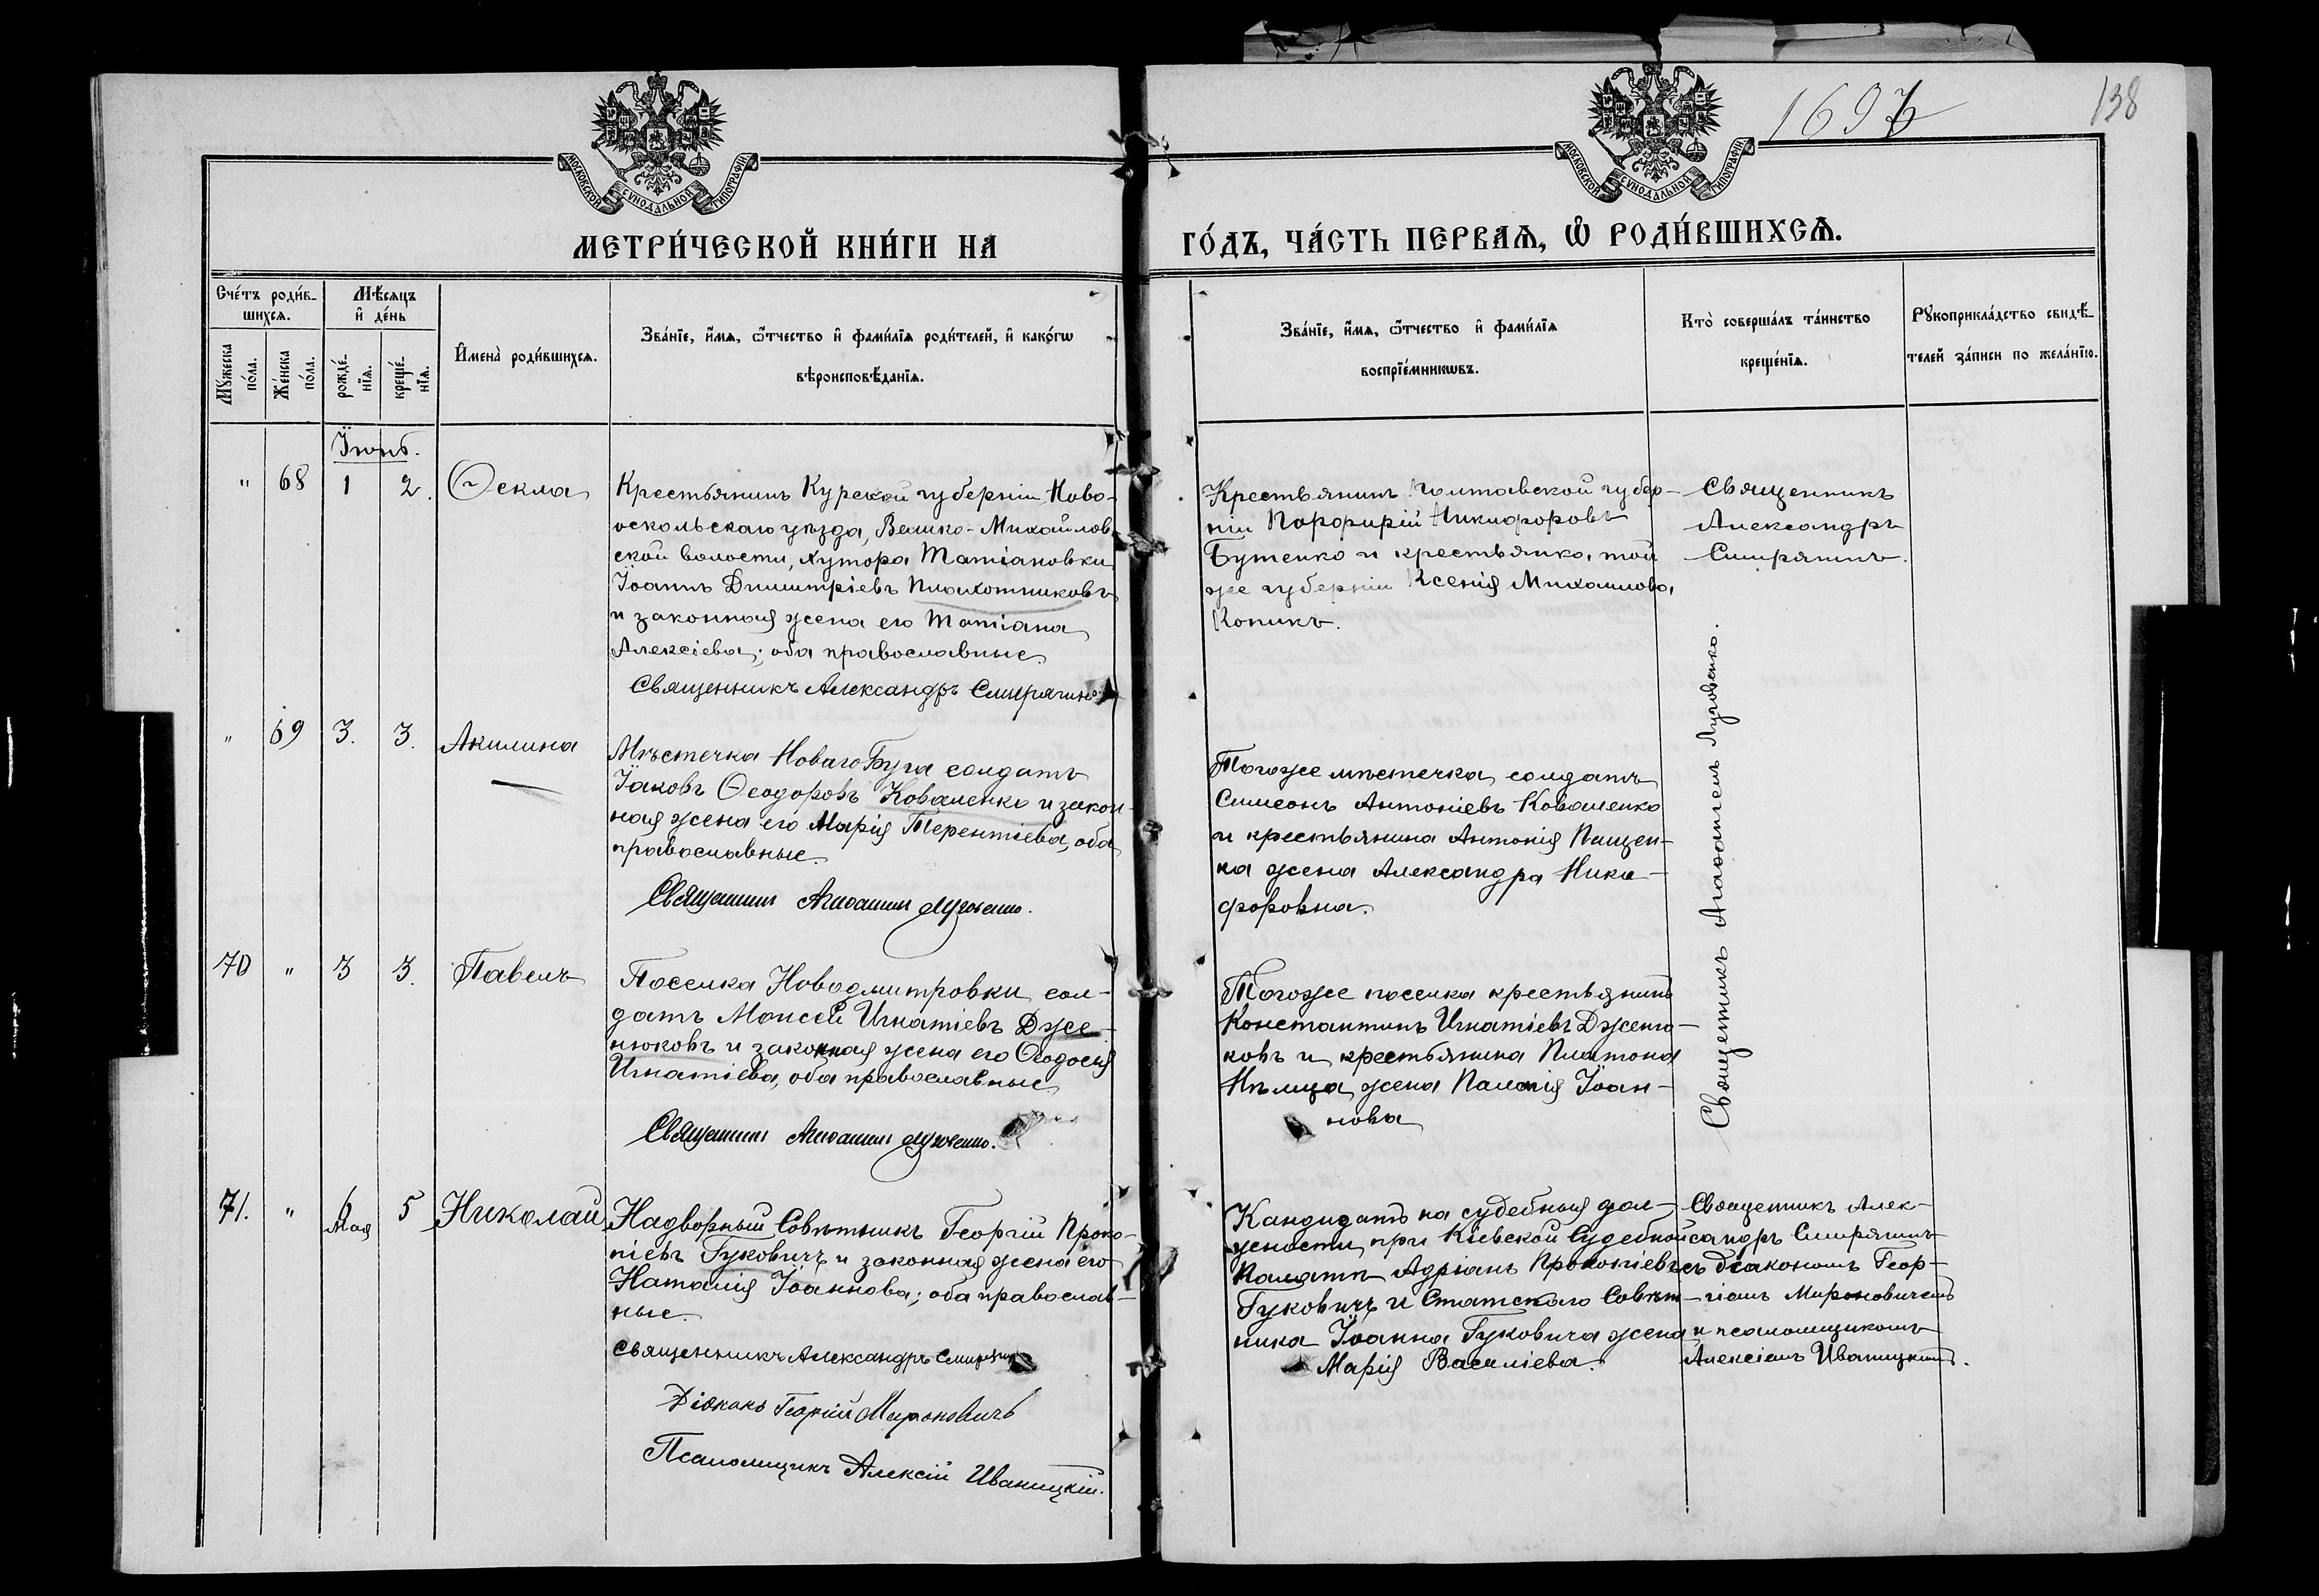 1697
138
МОСКОВСКОЙ СѴНОДАЛЬНОЙ ТИПОГРАФІИ
МОСКОВСКОЙ СѴНОДАЛЬНОЙ ТИПОГРАФІИ
МЕТРИ́ЧЕСКОЙ КНИ́ГИ НА
ГО́ДЪ, ЧА́СТЬ ПЕРВАѦ, Ѡ РОДИ́ВШИХСѦ.
Сче́тъ роди́в-
шихсѧ.
Мѣсѧцъ
и де́нь
Мꙋжеска по́ла.
Же́нска по́ла.
рожде́-
нїѧ.
креще́-
нїѧ.
Имена̀ роди́вшихсѧ.
Зва́нїе, и́мѧ, ѻ́тчество и фами́лїѧ роди́телей, и како́гѡ
вѣроисповѣ́данїѧ.
Зва́нїе, и́мѧ, ѻ́тчество и фами́лїѧ
воспрїе́мникѡвъ.
Кто̀ соверша́лъ та́инство
креще́нїѧ.
Рꙋкоприкла́дство свидѣ́-
телей за́писи по жела́нїю.
Іюнь.
" 68 1 2. Ѳекла
Крестьянинъ Курской губерніи, Ново-
оскольскаго уѣзда, Велико-Михайлов
ской волости, хутора Татіановки
Іоаннъ Димитріевъ Плохотниковъ
и законная жена его Татіана
Алексіева; оба православные.
Священникъ Александръ Смирягинъ
Крестьянинъ Полтавской губер-
ніи Порфирій Никифоровъ
Бутенко и крестьянка той
же губерніи Ксенія Михаилова
Копикъ.
Священникъ
Александръ
Смирягинъ.
" 69 3. 3. Акилина
Мѣстечка Новаго Буга солдатъ
Іаковъ Ѳеодоровъ Коваленко и закон
ная жена его Марія Терентіева, оба
православные.
Священникъ Луговенко.
Тогоже мѣстечка солдатъ
Симеонъ Антоніевъ Коваленко
и крестьянина Антонія Пащен-
ка жена Александра Ники-
форовна.
Священникъ Луговенко.
70 " 3 3. Павелъ
Поселка Новодмитровки сол-
датъ Моисей Игнатіевъ Дже-
нюковъ и законная жена его Ѳеодосія
Игнатіева, оба православные
Священникъ Луговенко.
Тогоже поселка крестьянинъ
Константинъ Игнатіевъ Дженю-
ковъ и крестьянина Платона
Нѣмца жена Палагія Іоан-
нова
71. " 6 Мая 5 Николай
Надворный Совѣтникъ Георгій Проко-
піевъ Гуковичъ и законная жена его
Наталія Іоаннова; оба православ-
ные.
Священникъ Александръ Смирягинъ
Діаконъ Георгій Мироновичъ
Псаломщикъ Алексій Иваницкій.
Кандидатъ на судебныя дол-
жности при Кіевской Судебной
Палатѣ Адріанъ Прокопіевъ
Гуковичъ и Статскаго Совѣт-
ника Іоанна Гуковича жена
Марія Василіева.
Священникъ Алек-
сандръ Смирягинъ
съ діакономъ Геор-
гіемъ Мироновичемъ
и псаломщикомъ
Алексіемъ Иваницкимъ.